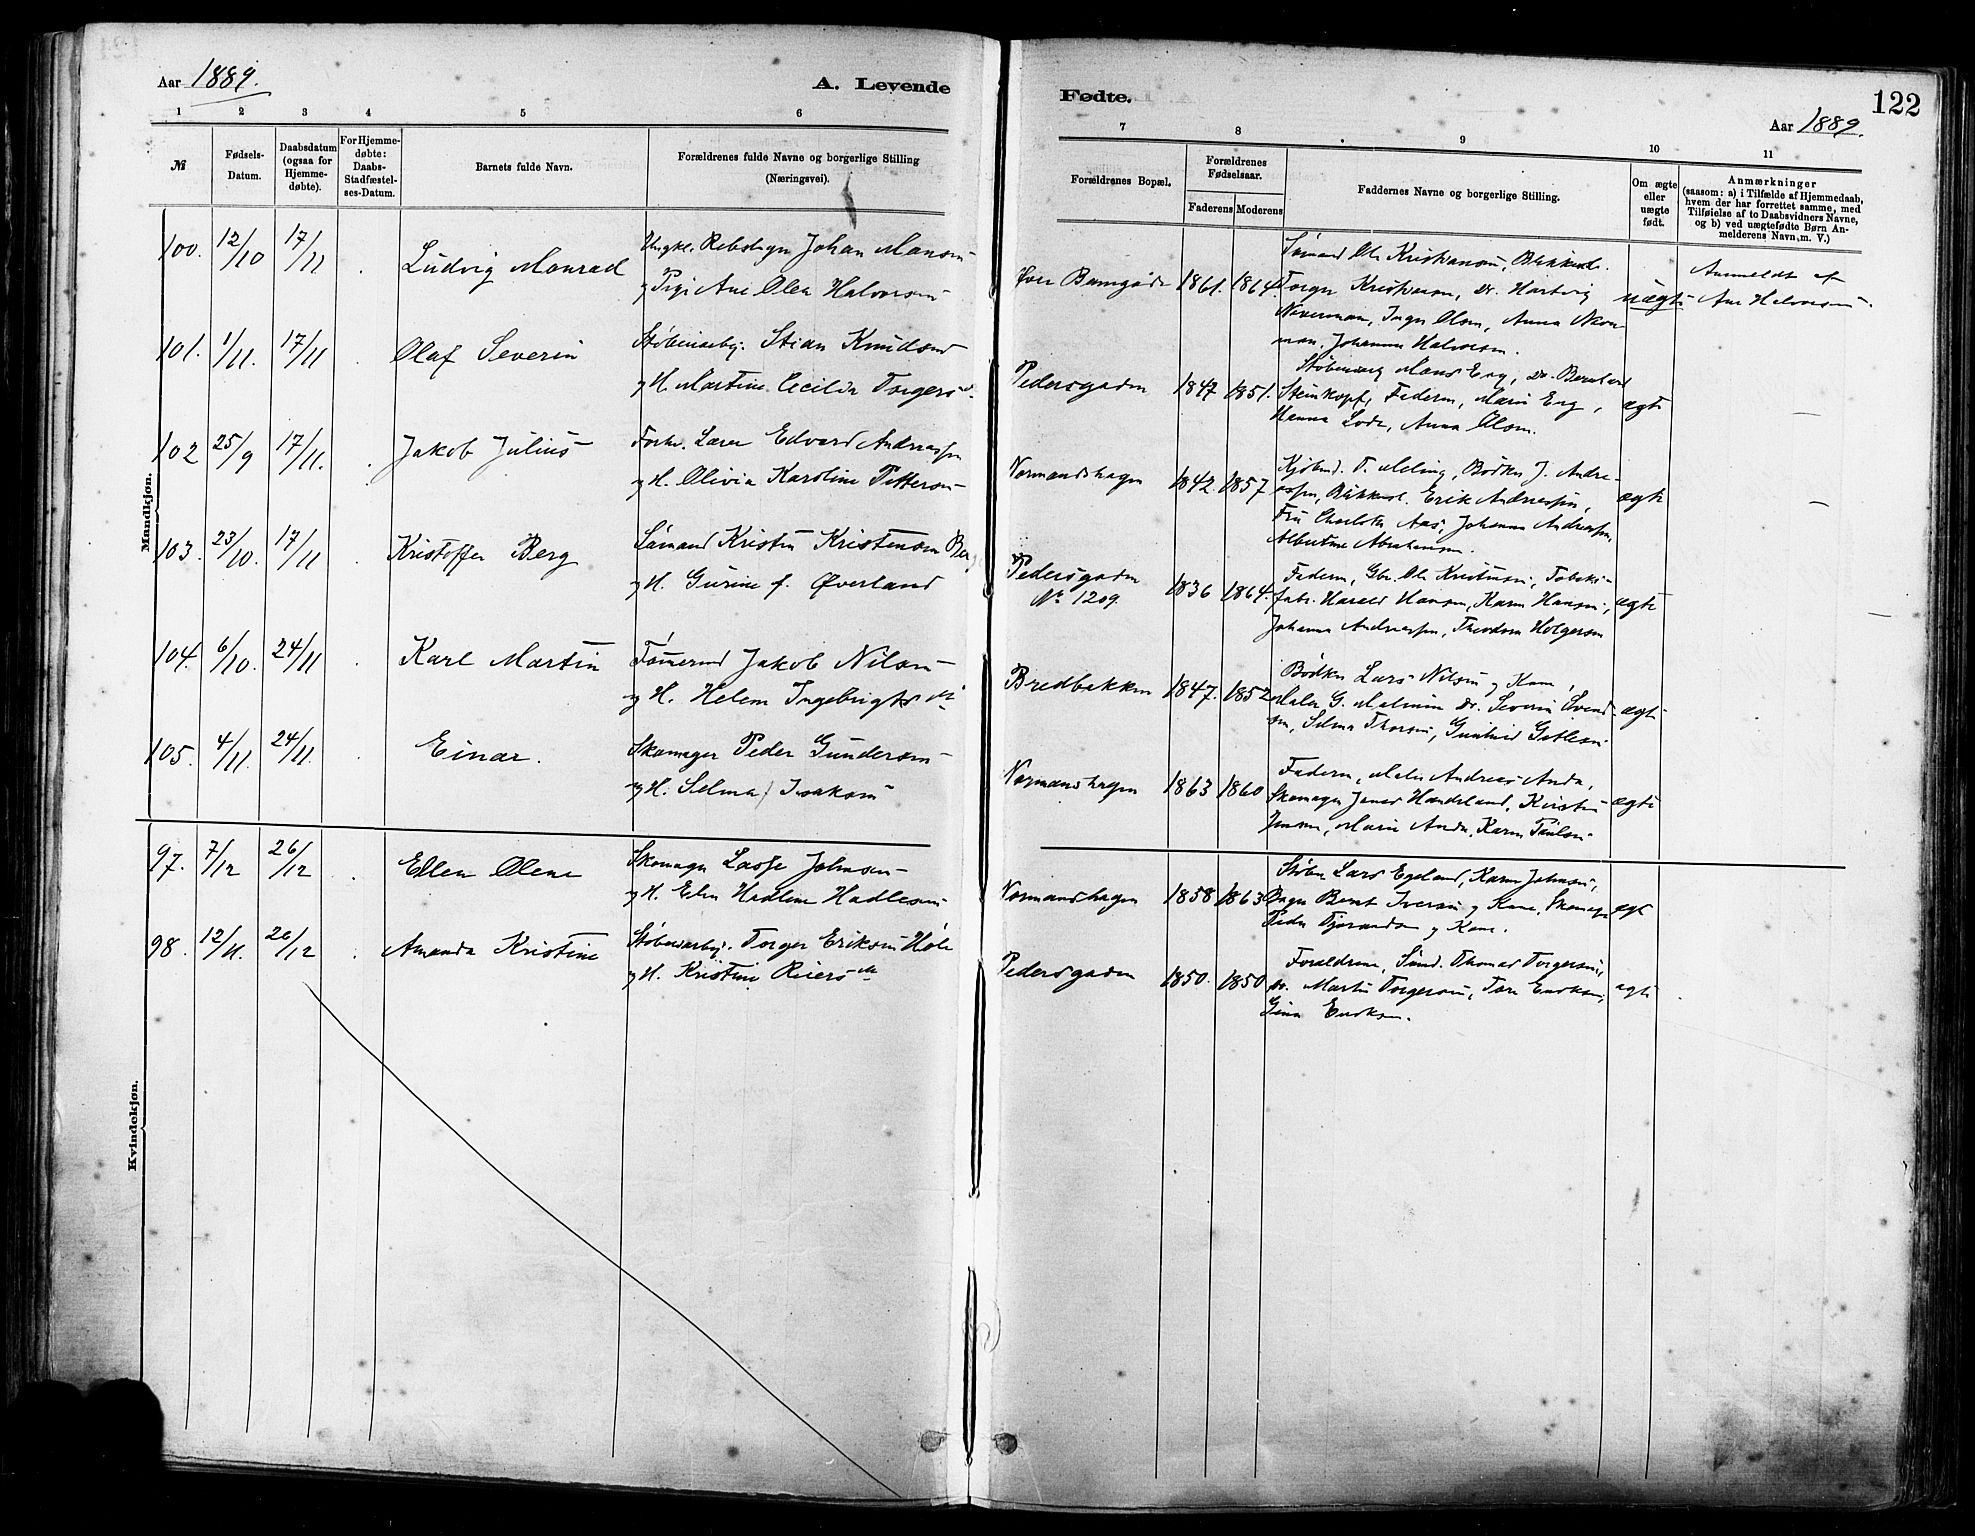 Aar 1889.
A. Levende
1 2 3 4 5 6
№
Fødsels-Datum.
Daabsdatum (ogsaa for Hjemme-døbte).
For Hjemme-døbte: Daabs-Stadfæstel-ses-Datum.
Barnets fulde Navn.
Forældrenes fulde Navne og borgerlige Stilling
(Næringsvei).
Mandkjøn.
100. 12/10 17/11 Ludvig Monrad
Ungkl. Johan Monsen
og Pige Ane Olea Halvorsen
101. 1/11. 17/11 Olaf Severin
Støberiarb. Stian Knudsen
og H. Martine Cecilia Torgersd.
102 25/9 17/11. Jakob Julius
Forhv. Lærer Edvard Andreassen
og H. Olivia Karoline Pettersen
103. 23/10. 17/11 Kristoffer Berg
Sømand Kristen Kristensen Berg
og H. Gurine f. Øverland
104. 6/10. 24/11 Karl Martin
Tømermd Jakob Nilsen
og H. Helene Ingebrigtsdt
105. 4/11. 24/11. Einar.
Skomager Peder Gundersen
og H. Selma Isaksen
Kvindekjøn.
97. 7/12 26/12 Ellen Olene
Skomager Lasse Johnsen
og H. Elen Hadline Hadlesen
98. 12/11. 26/12 Amanda Kristine
Støberiarb. Torger Eriksen Hole
og H. Kristine Reiersdt
Fødte.
122
Aar 1889.
7 8 9 10 11
Forældrenes Bopæl.
Forældrenes Fødselsaar.
Faderens Moderens
Faddernes Navne og borgerlige Stilling.
Om ægte eller uægte født.
Anmærkninger
(saasom: a) i Tilfælde af Hjemmedaab,
hvem der har forrettet samme, med
Tilføielse af to Daabsvidners Navne,
og b) ved uægtefødte Børn An-
melderens Navn, m. V.)
1861. 1864.
Sømand Ole Kristiansen,
Torger Kristiansen, Do. Hartvig
Neverman, Inger Olsen, Anna
Johanna Halvorsen.
uægte
Anmeldt af
Ane Halvorsen.
Pedersgaden 1847 1851.
Støberiarb Mons Eng, Do. Bernhard
Steinkopf, Faderen, Marie Eng,
Hanna Lode, Anna Olsen.
ægte —
Normandshagen 1842. 1857
Kjøbmd. T. Meling, Bødker J. Andre-
assen, Erik Andreassen,
Fru Charlotte Aas, Johanna Andreassen,
Albertine Abrahamsen.
ægte —
Pedersgaden
No 1209. 1836 1864.
Faderen, Gbr. Ole Kristensen, Tobaks-
fabr. Harald Hansen, Karen Hansen,
Johanna Andreassen, Theodora Holgersen
ægte —
Bredbakken 1847. 1852
Bødker Lars Nilsen og Kone,
Maler G. Malmin Do. Severin Svend-
sen, Selma Thorsen, Gunhild Gitlesen
ægte
Normanshagen 1863 1860
Faderen, Maler Andreas Anda,
Skomager Jonas Handeland, Kirsten
Jensen, Marie Anda, Karen Paulsen
ægte
Normanshagen 1858 1863
Støber Lars Egeland, Karen Johnsen,
Bager Bernt Iversen og Kone, Skomager
Peder Tjeransen og Kone.
ægte
Pedersgaden 1850. 1850
Forældrene, Sømd. Thomas Torgersen,
Do. Martin Torgersen, Tore Eriksen,
Gina Eriksen.
ægte